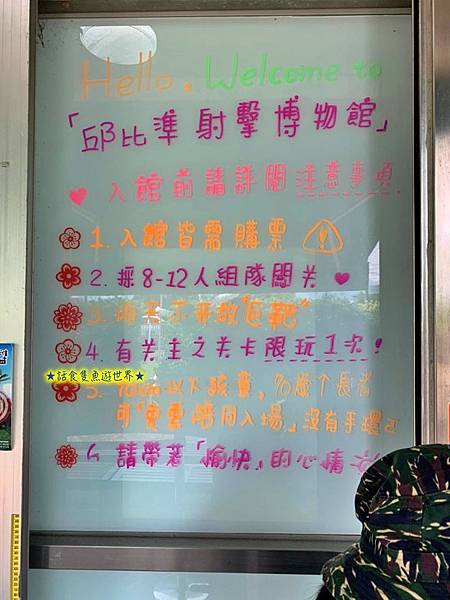 Hello. Welcome to
「邱比準射擊博物館」
♥ 入館前請詳閱注意事項.
1. 入館皆需購票
2. 採8-12人組隊闖关 ♥
3. 不開放"包靶"
4. 有关主之关卡限玩1次!
★話食隻魚遊世界★
5. 90cm以下孩童,70歲↑長者
可「免票陪同入場」沒有手環
6. 請帶著「愉快」的心情